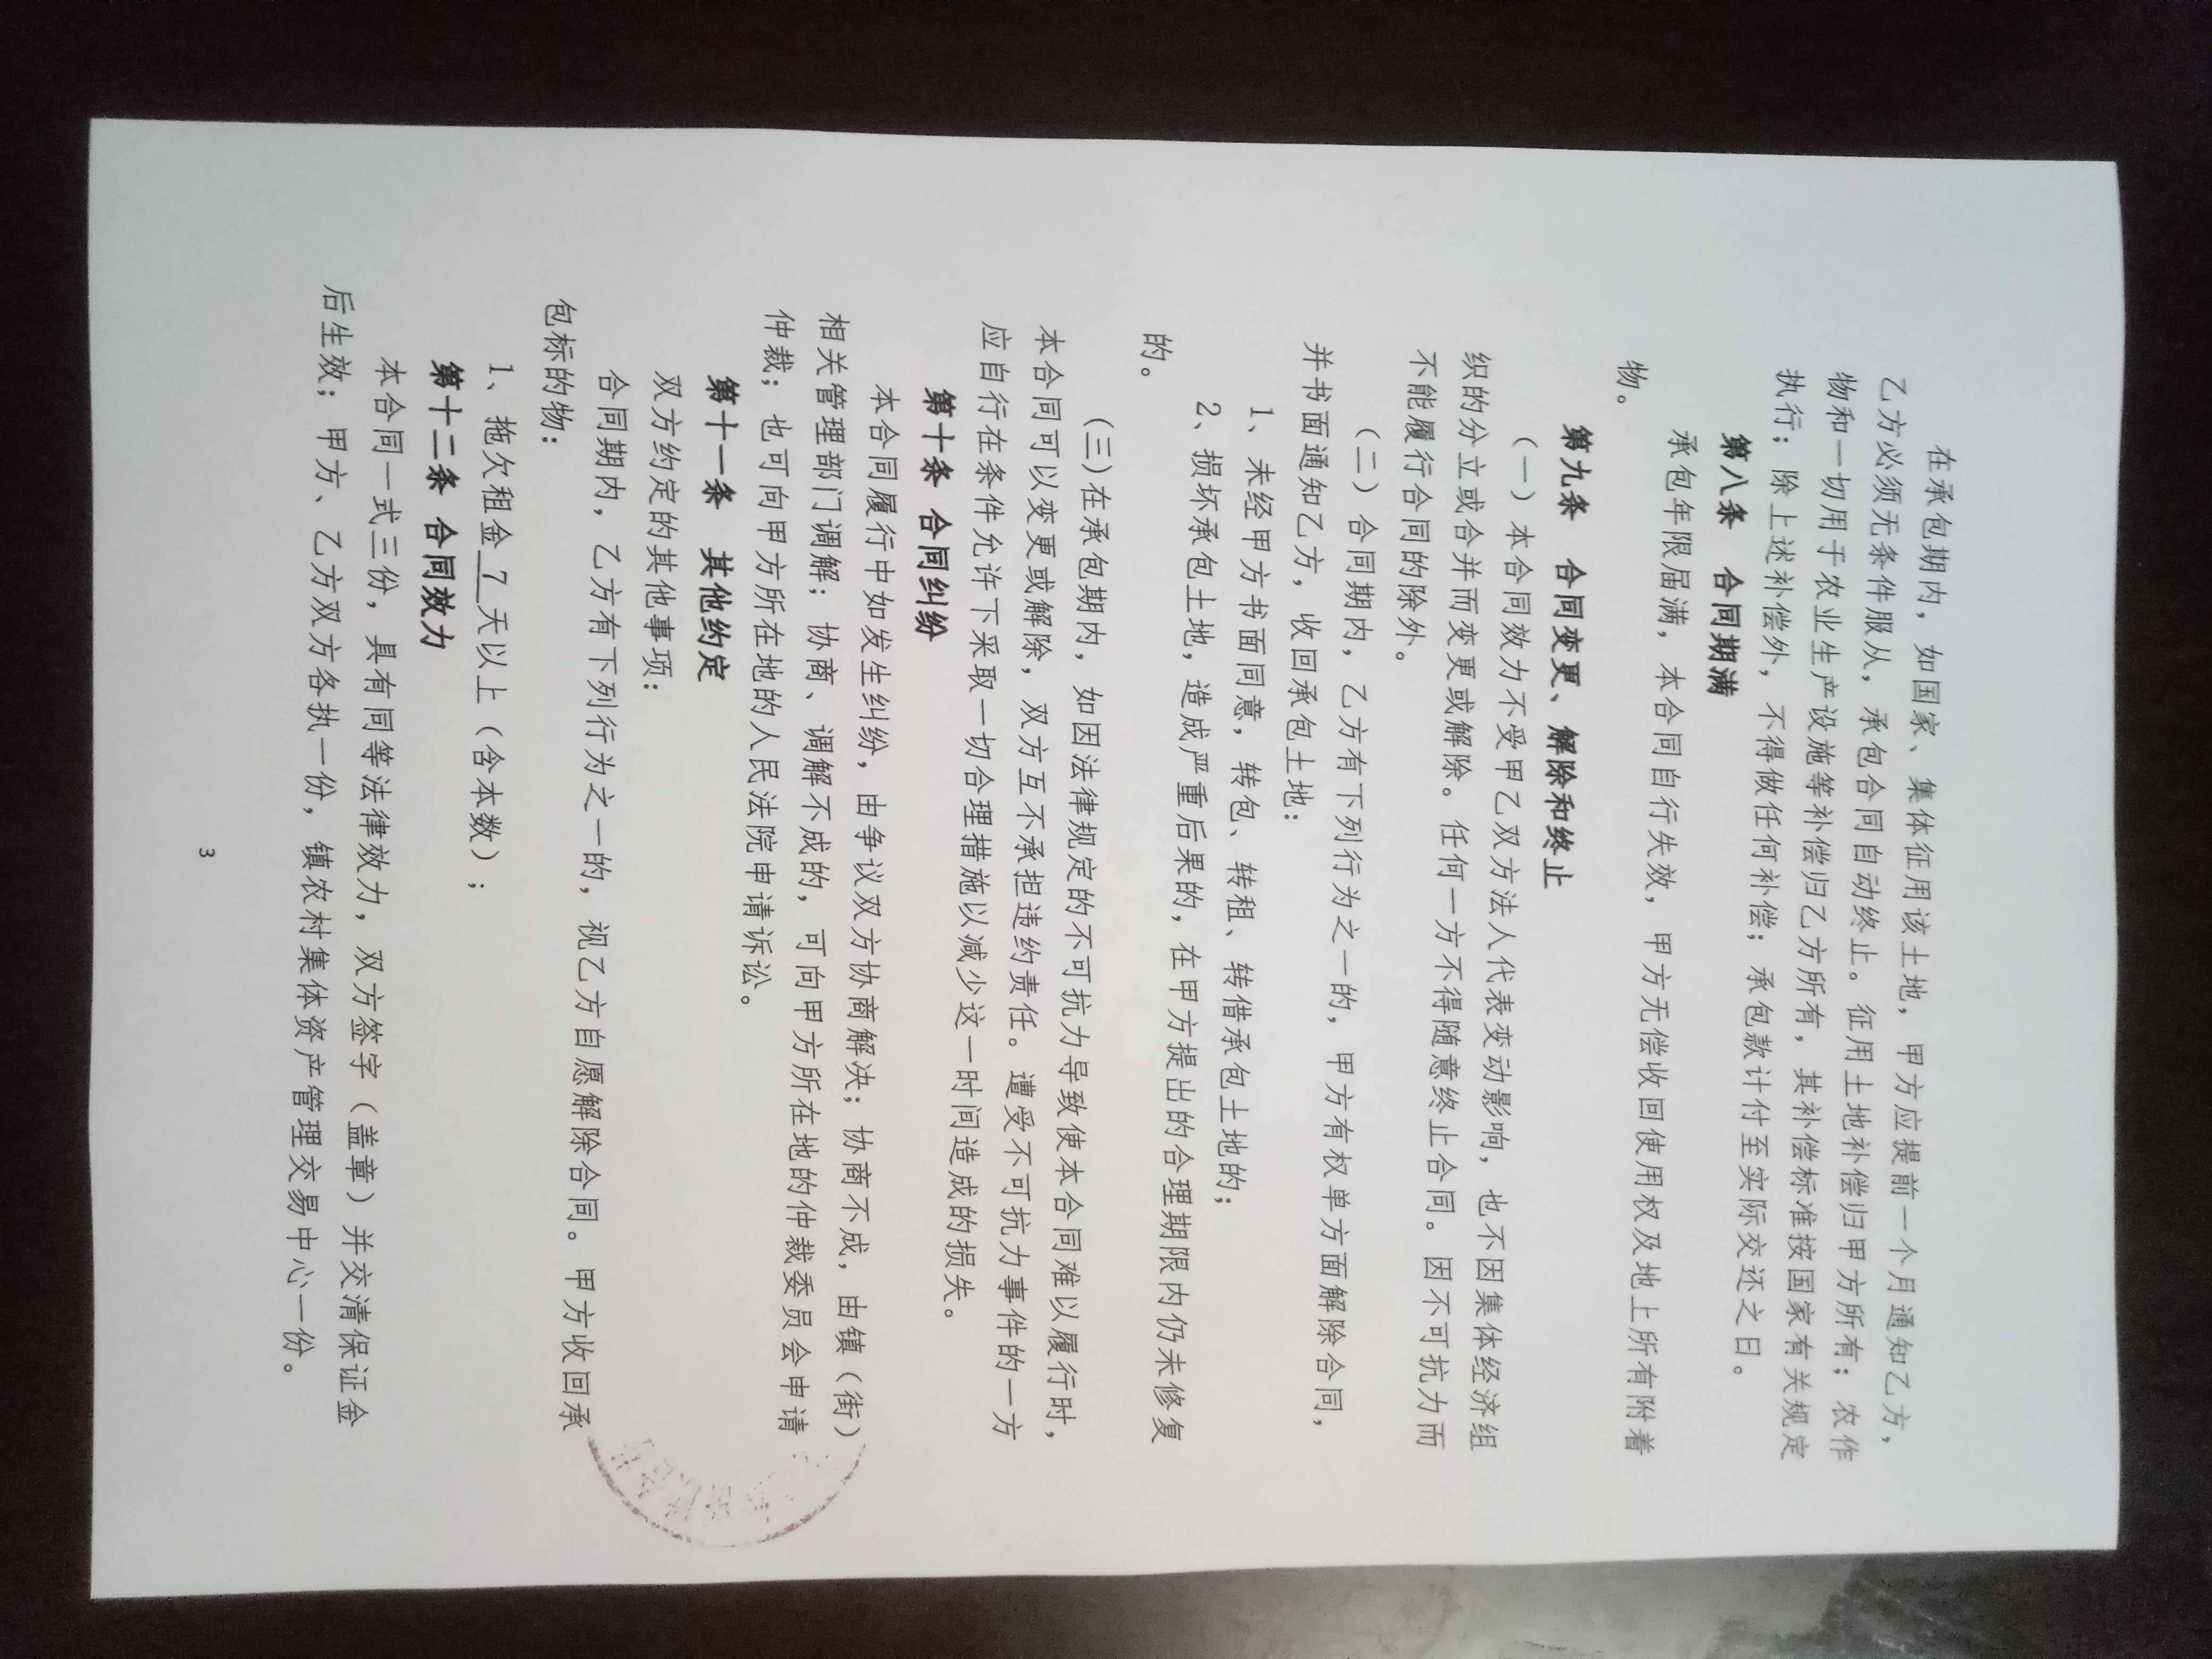 在承包期内，如国家、集体征用该土地，甲方应提前一个月通知乙方，
乙方必须无条件服从，承包合同自动终止。征用土地补偿归甲方所有；农作
物和一切用于农业生产设施等补偿归乙方所有，其补偿标准按国家有关规定
执行；除上述补偿外，不得做任何补偿；承包款计付至实际交还之日。
第八条 合同期满
承包年限届满，本合同自行失效，甲方无偿收回使用权及地上所有附着
物。
第九条 合同变更、解除和终止
（一）本合同效力不受甲乙双方法人代表变动影响，也不因集体经济组
织的分立或合并而变更或解除。任何一方不得随意终止合同。因不可抗力而
不能履行合同的除外。
（二）合同期内，乙方有下列行为之一的，甲方有权单方面解除合同，
并书面通知乙方，收回承包土地：
1、未经甲方书面同意，转包、转租、转借承包土地的；
2、损坏承包土地，造成严重后果的，在甲方提出的合理期限内仍未修复
的。
（三）在承包期内，如因法律规定的不可抗力导致使本合同难以履行时，
本合同可以变更或解除，双方互不承担违约责任。遭受不可抗力事件的一方
应自行在条件允许下采取一切合理措施以减少这一时间造成的损失。
第十条 合同纠纷
本合同履行中如发生纠纷，由争议双方协商解决；协商不成，由镇（街）
相关管理部门调解；协商、调解不成的，可向甲方所在地的仲裁委员会申请
仲裁；也可向甲方所在地的人民法院申请诉讼。
第十一条 其他约定
双方约定的其他事项：
合同期内，乙方有下列行为之一的，视乙方自愿解除合同。甲方收回承
包标的物：
1、拖欠租金 7 天以上（含本数）；
第十二条 合同效力
本合同一式三份，具有同等法律效力，双方签字（盖章）并交清保证金
后生效；甲方、乙方双方各执一份，镇农村集体资产管理交易中心一份。
3